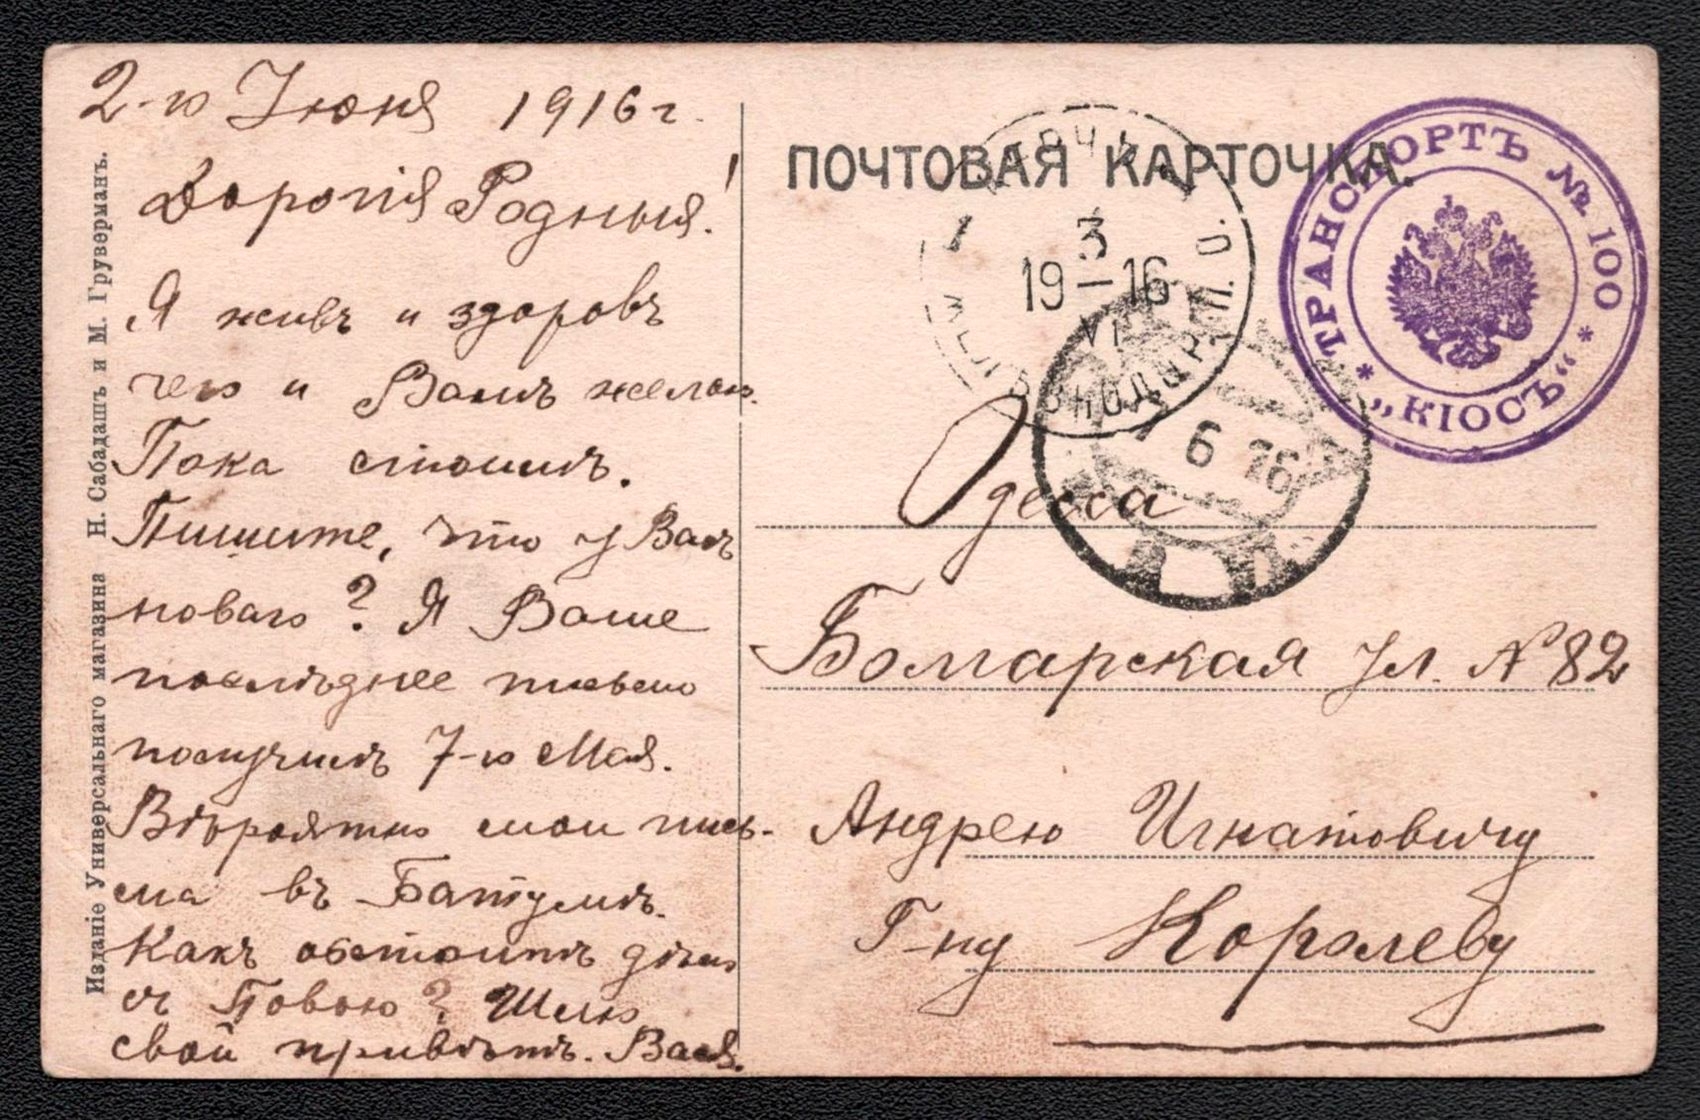 2-го Іюня 1916 г.
Дорогія Родныя!
Я живъ и здоровъ
чего и Вамъ желаю.
Пока стоимъ.
Пишите, что у Васъ
новаго? Я Ваше
послѣднее письмо
получилъ 7-го Мая.
Вѣроятно мои пись-
ма въ Батумѣ.
Какъ обстоитъ дѣло
съ Повою? Шлю
свой привѣтъ. Вася.
Изданіе Универсальнаго магазина Н. Сабадашъ и М. Груверманъ.
ПОЧТОВАЯ КАРТОЧКА.
КЕРЧЬ
3
19—16
VI
ЖЕЛѢЗНОДОР. П. О.
ТРАНСПОРТЪ № 100
* „КІОСЪ“ *
6 16
Одесса
Болгарская ул. № 82
Андрею Игнатовичу
Г-ну Королеву